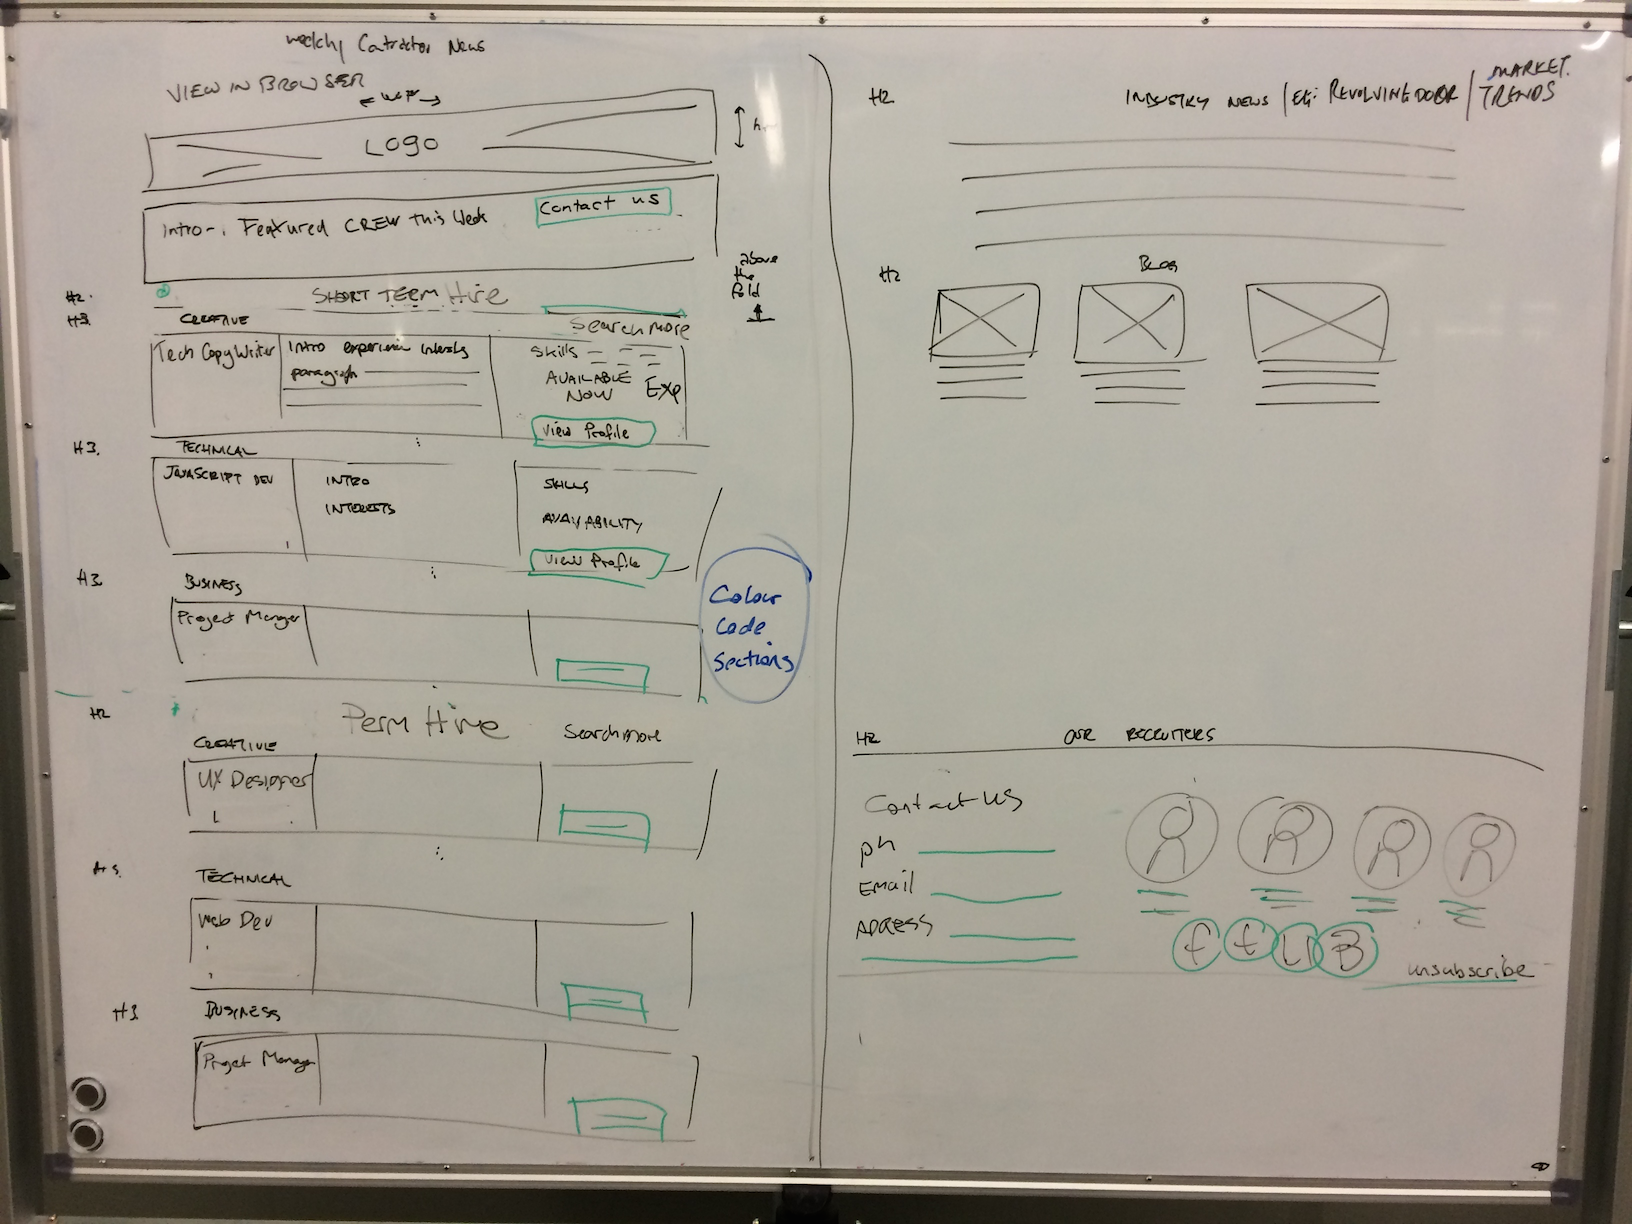 weekly Contractor News
VIEW IN BROWSER
LOGO
Intro-. Featured CREW this Week
Contact us
above
the
fold
H2.
SHORT TERM Hire
H3.
CREATIVE
Search more
Tech CopyWriter
Intro experience interests
paragraph
Skills
AVAILABLE
NOW
Exp
View Profile
H3.
TECHNICAL
JAVASCRIPT DEV
INTRO
INTERESTS
SKILLS
AVAYABILITY
View Profile
H3.
BUSINESS
Project Manger
Colour
Code
Sections
H2
Perm Hire
Search more
CREATIVE
UX Designer
TECHNICAL
Web Dev
H3.
BUSINESS
Project Manager
H2
INDUSTRY NEWS / EG: REVOLVING DOOR / MARKET.
TRENDS
H2
BLOG
H2
OUR RECRUITERS
Contact us
ph
Email
ADRESS
f t U B
unsubscribe